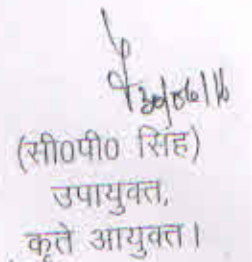 30/06/16
(सी0पी0 सिंह)
उपायुक्त,
कृते आयुक्त।